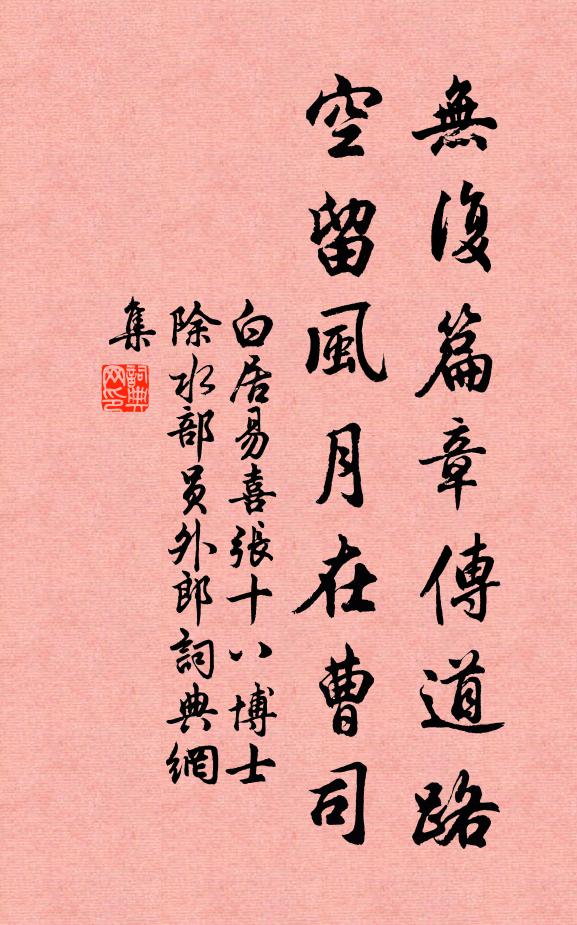 無復篇章傳道路
空留風月在曹司
白居易喜張十八博士
除水部員外郎詞典網
集
詞典
网印